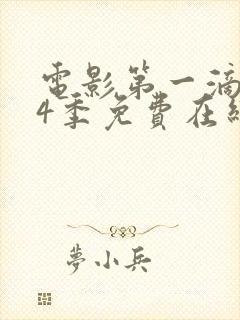 電影第一滴
4季免費在
夢小兵